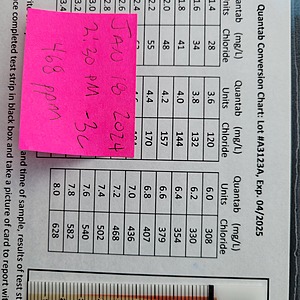 Quantab Conversion Chart: Lot #A3123A, Exp. 04/2025
Quantab Chloride Quantab Chloride Quantab Chloride
Units (mg/L) Units (mg/L) Units (mg/L)
1.4 28 3.6 120 6.0 308
34 3.8 132 6.2 330
1.8 41 4.0 144 6.4 354
2.0 48 4.2 157 6.6 379
2.2 55 4.4 170 6.8 407
7.0 436
7.2 468
2.8 7.4 502
3.0 7.6 540
3.2 7.8 582
3.4 8.0 628
JAN 18 2024
2:30 PM -3C
468 ppm
and time of sample, results of test
completed test strip in black box and take a picture of card to report